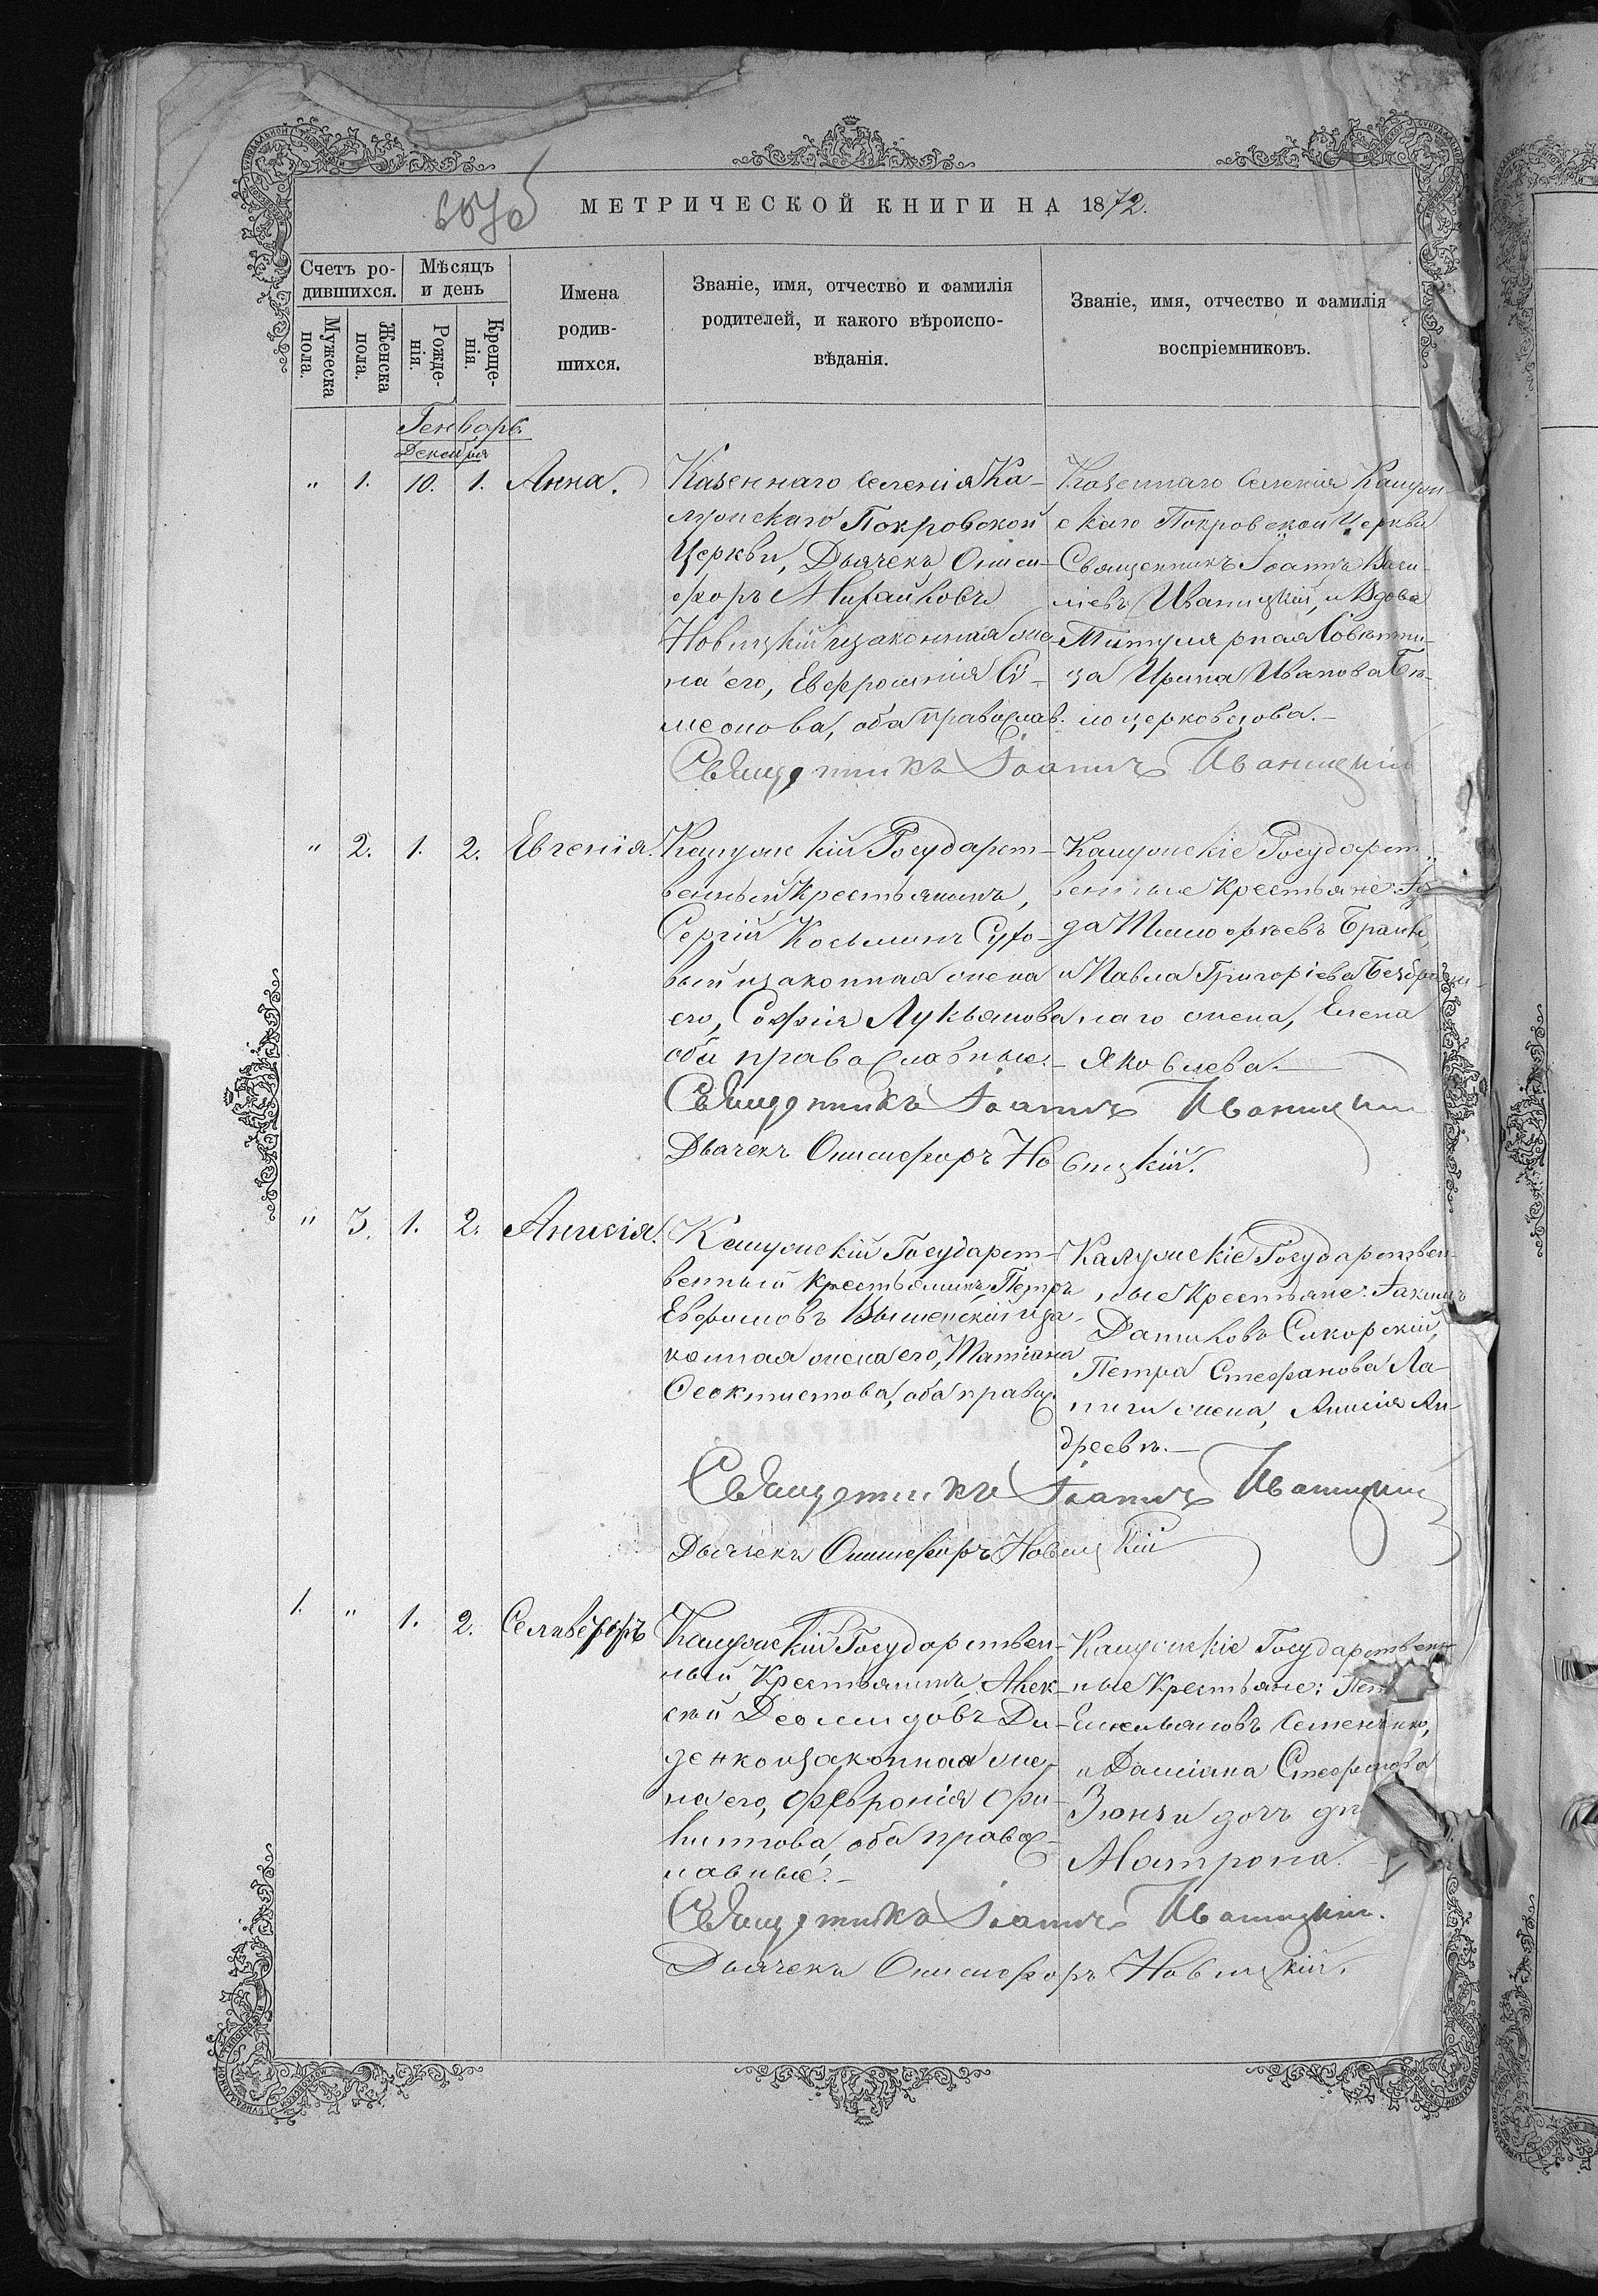 МЕТРИЧЕСКОЙ КНИГИ НА 1872.
Счетъ ро-
дившихся.
Мужеска
пола.
Женска
пола.
Мѣсяцъ
и день
Рожде-
нія.
Креще-
нія.
Имена
родив-
шихся.
Званіе, имя, отчество и фамилія
родителей, и какого вѣроиспо-
вѣданія.
Званіе, имя, отчество и фамилія
воспріемниковъ.
Генварь.
Декабря
" 1. 10. 1. Анна.
Казеннаго селенія Ка-
Покровской
Церкви, Дьячекъ Ониси-
форъ Михайловъ
Новицкій и законная же-
на его, Евфросинія Си-
меонова, оба православ.
Казеннаго селенія
скаго Покровской Церкви
Священникъ Іоаннъ Васи-
ліевъ Иваницкій, и Вдова
Титулярная Совѣтни-
ца Ирина Иванова Бѣ-
лоцерковцова.-
Священникъ Іоаннъ Иваницкій
" 2. 1. 2. Евгенія.
Государст-
венный Крестьянинъ,
Сергій Косьминъ Сухо-
вый и законная жена
его, Софія Лукьянова
оба православные.-
Государст-
венные Крестьяне:
Тимофеевъ
и Павла Григорієва
наго жена, Елена
Яковлева.-
Священникъ Іоаннъ Иваницкій
Дьячекъ Онисифоръ Новицкій.
" 3. 1. 2. Анисія.
Государст-
венный крестьянинъ Петръ
Евфимовъ и за-
конная жена его, Татіана
Феоктистова, оба правос.
Государствен-
ные Крестьяне: Іакимъ
Даниловъ Сикорскій,
Петра Стефанова Ла-
пиги жена, Анисія Ан-
дреева.-
Священникъ Іоаннъ Иваницкій
Дьячекъ Онисифоръ Новицкій
1. " 1. 2. Селиверстръ
Государствен-
ный Крестьянинъ Алек-
сѣй Деомидовъ Ди-
денко и законная же-
на его, Февронія Фи-
липпова, оба правос-
лавные.-
Государствен-
ные Крестьяне:
Емельяновъ Семененко,
и Даміана Стефанова
дочь
Матрона.
Священникъ Іоаннъ Иваницкій.
Дьячекъ Онисифоръ Новицкій.